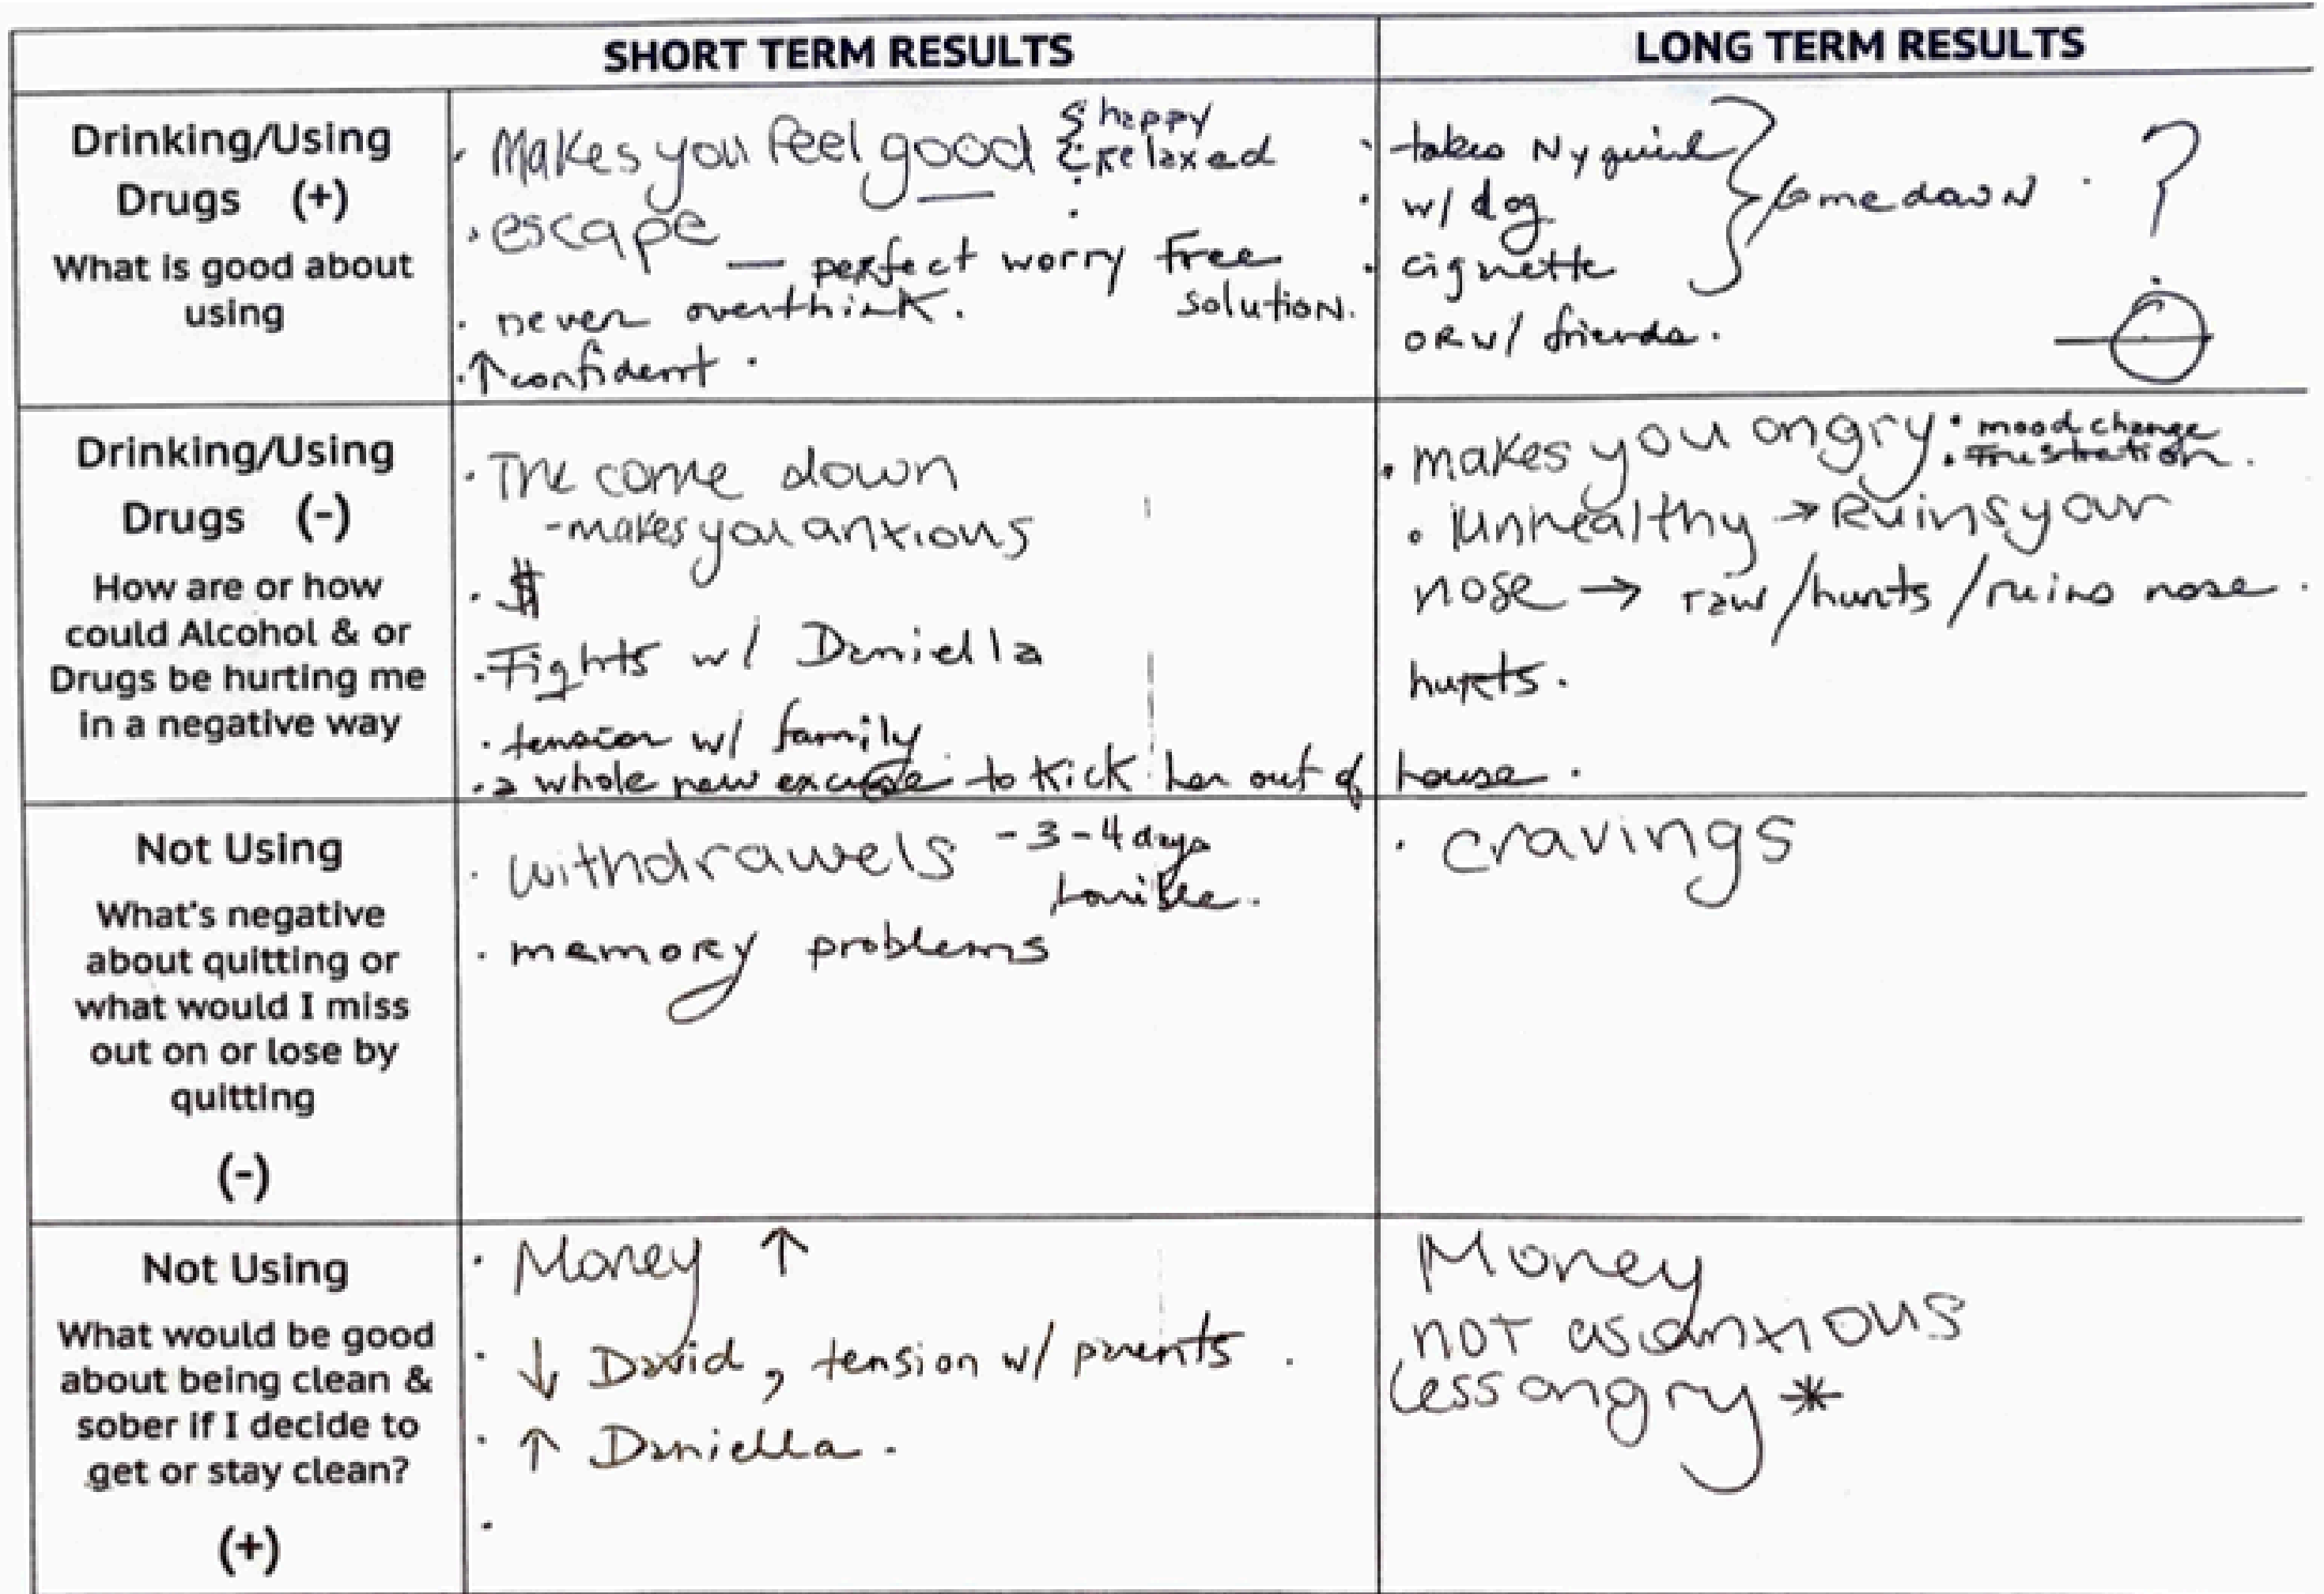 SHORT TERM RESULTS
LONG TERM RESULTS
Drinking/Using
Drugs (+)
What is good about
using
· Makes you feel good { happy
& relaxed
· escape — perfect worry free
solution.
· never overthink.
· ↑ confident.
· takes Nyquil
· w/ dog
· cigrette
OR w/ friends.
} come down . ?
Drinking/Using
Drugs (-)
How are or how
could Alcohol & or
Drugs be hurting me
in a negative way
· The come down
- makes you anxious
· $
· Fights w/ Daniella
· tension w/ family
· a whole new excuse to kick her out of house.
· makes you angry · mood change
· Frustration.
· Unhealthy → Ruins your
nose → raw/hurts/ruins nose.
hurts.
Not Using
What's negative
about quitting or
what would I miss
out on or lose by
quitting
(-)
· withdrawels - 3-4 days
horrible.
· memory problems
· cravings
Not Using
What would be good
about being clean &
sober if I decide to
get or stay clean?
(+)
· Money ↑
· ↓ David, tension w/ parents.
· ↑ Daniella.
·
Money
not as anxious
less angry *